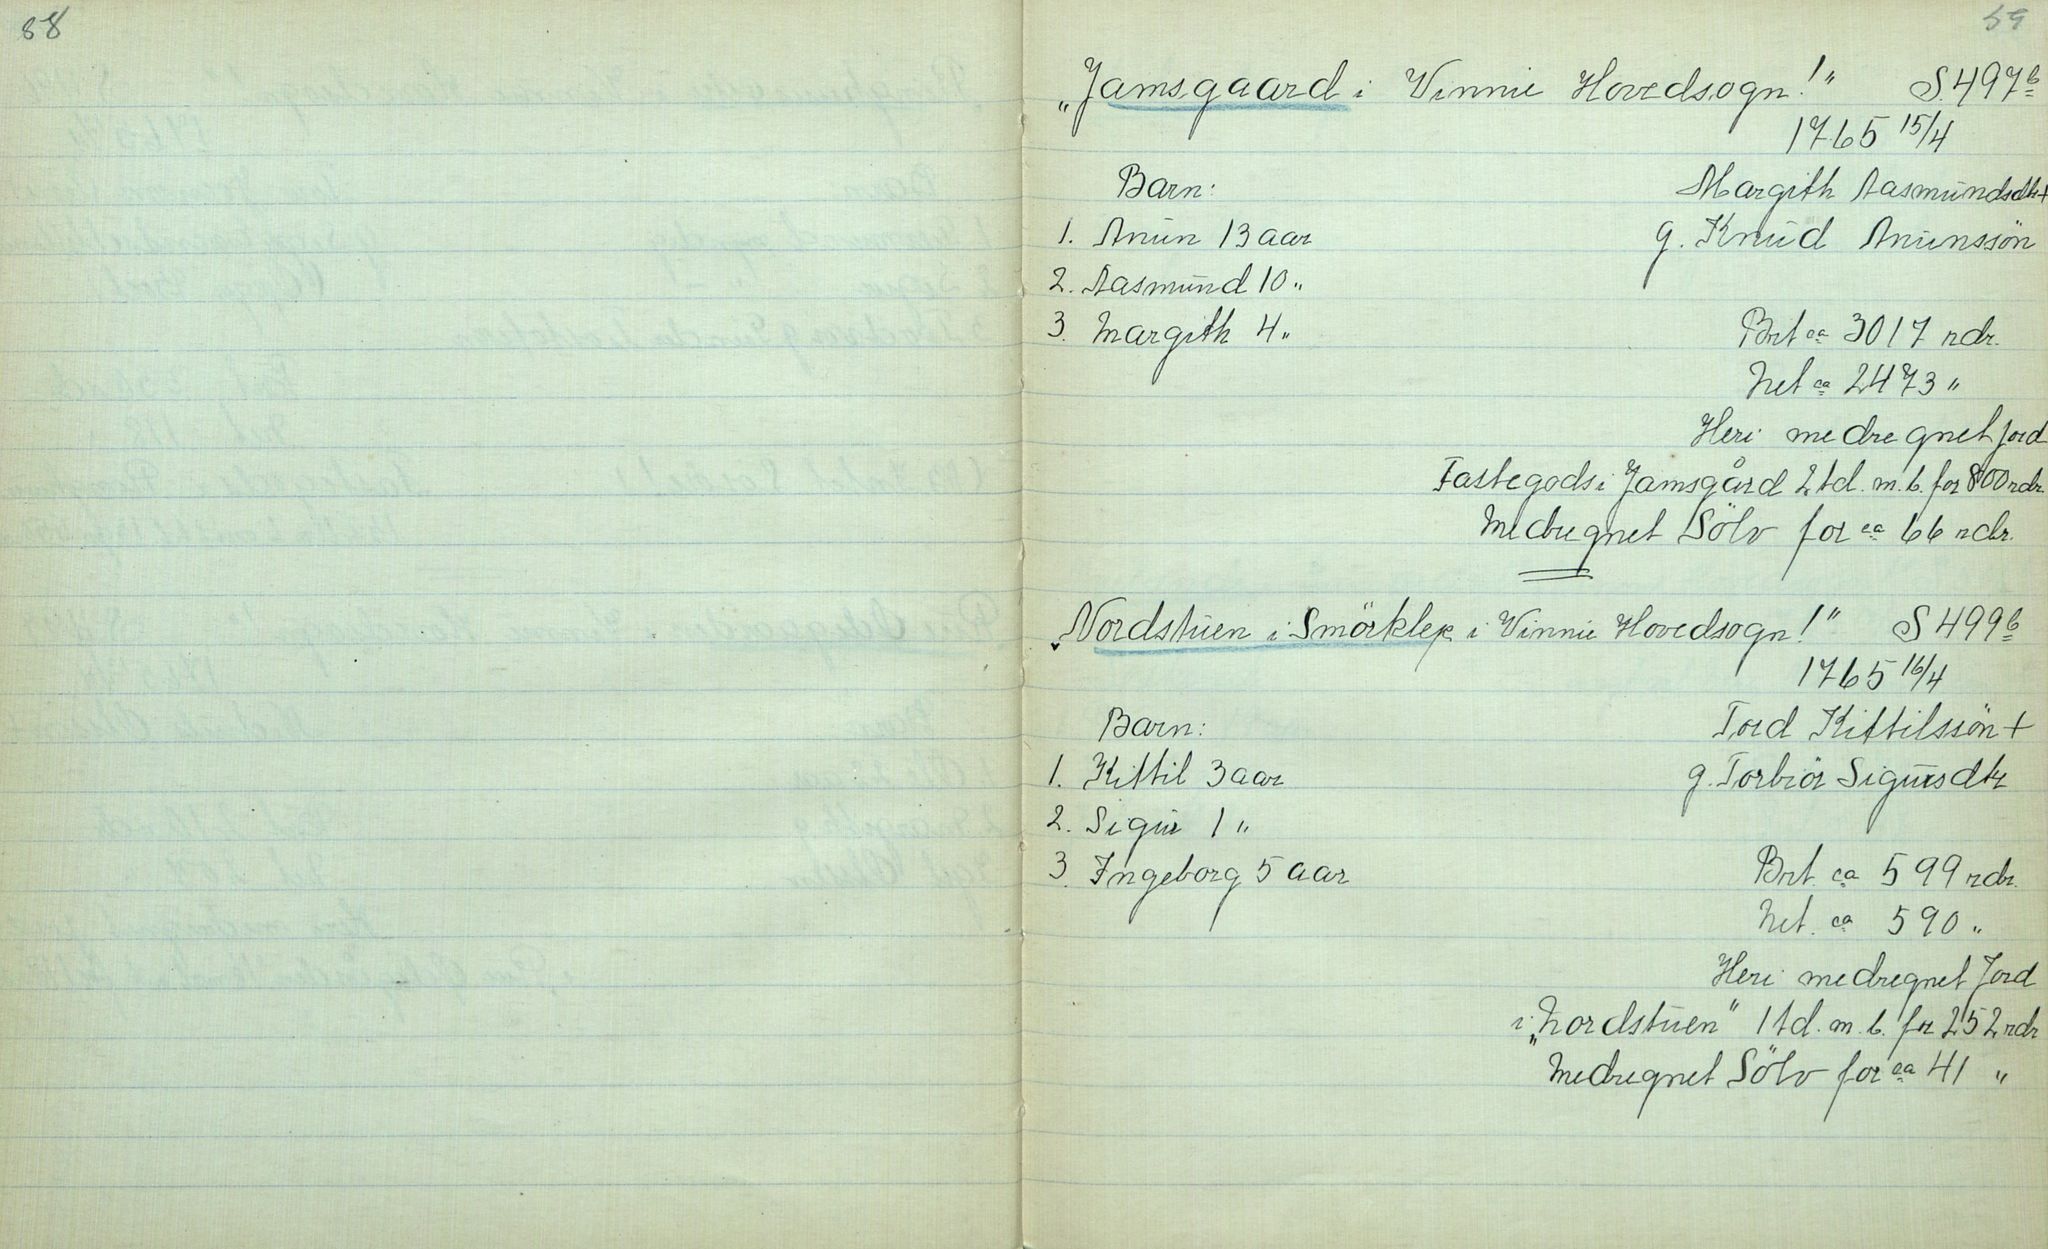 58
59
„Jamsgaard i Vinnie Hovedsogn!" S. 497b
1765 15/4
Barn: Margith Aasmundsdtr +
1. Anun 13 aar g. Knud Anunssön
2. Aasmund 10 "
3. Margith 4 " Brt ca 3017 rdr.
Net ca 2473 "
Heri medregnet jord
Fastegods i Jamsgård 2 td. m. b. for 800 rdr.
Medregnet Sölv for ca 66 rdr.
„Nordstuen i Smörklep i Vinnie Hovedsogn!" S 499b
1765 16/4
Barn: Tord Kittilssön +
1. Kittil 3 aar g. Torbiör Sigursdtr
2. Sigur 1 "
3. Ingeborg 5 aar Brt. ca 599 rdr.
Net. ca 590 "
Heri medregnet Jord
i „Nordstuen" 1 td. m. b. for 252 rdr
Medregnet Sölv for ca 41 "